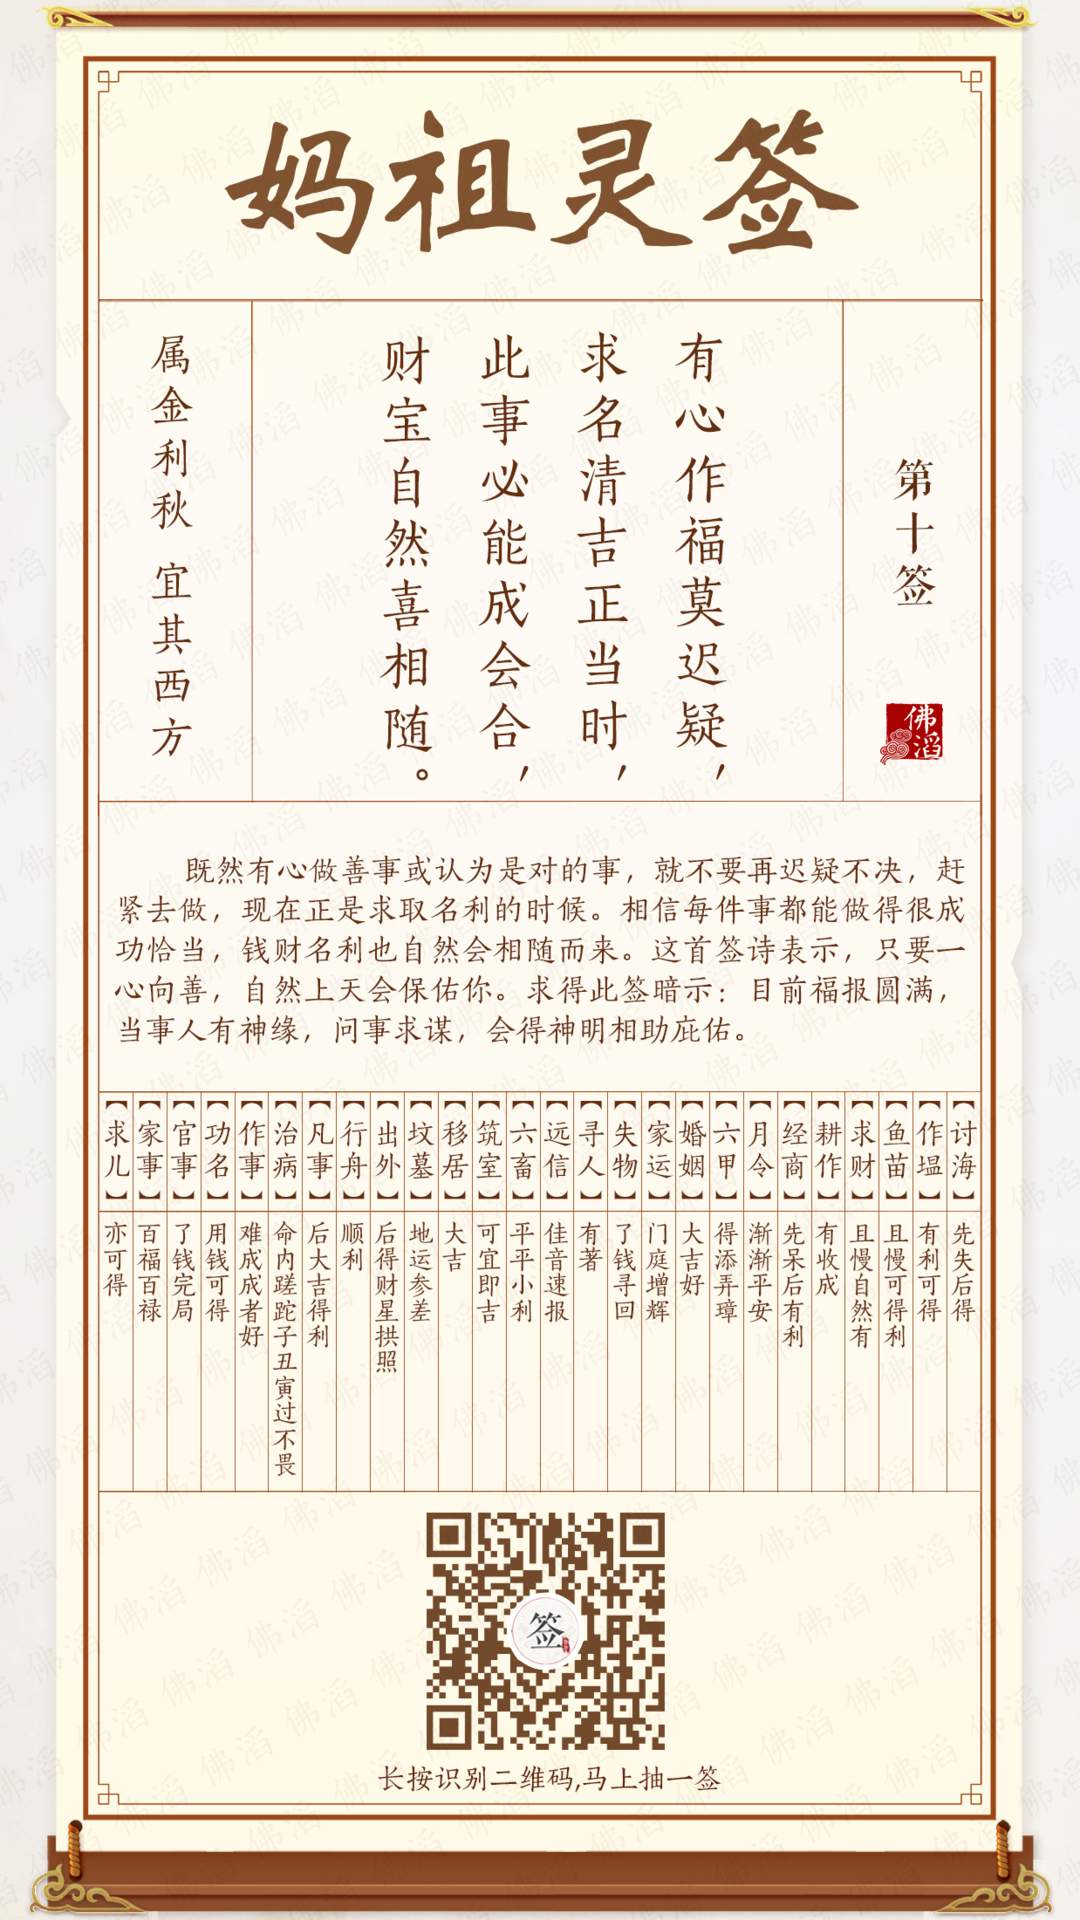 妈祖灵签
第十签
佛滔
有心作福莫迟疑，
求名清吉正当时，
此事必能成会合，
财宝自然喜相随。
属金利秋 宜其西方
既然有心做善事或认为是对的事，就不要再迟疑不决，赶
紧去做，现在正是求取名利的时候。相信每件事都能做得很成
功恰当，钱财名利也自然会相随而来。这首签诗表示，只要一
心向善，自然上天会保佑你。求得此签暗示：目前福报圆满，
当事人有神缘，问事求谋，会得神明相助庇佑。
【讨海】先失后得
【作塭】有利可得
【鱼苗】且慢可得利
【求财】且慢自然有
【耕作】有收成
【经商】先呆后有利
【月令】渐渐平安
【六甲】得添弄璋
【婚姻】大吉好
【家运】门庭增辉
【失物】了钱寻回
【寻人】有著
【远信】佳音速报
【六畜】平平小利
【筑室】可宜即吉
【移居】大吉
【坟墓】地运参差
【出外】后得财星拱照
【行舟】顺利
【凡事】后大吉得利
【治病】命内蹉跎子丑寅过不畏
【作事】难成成者好
【功名】用钱可得
【官事】了钱完局
【家事】百福百禄
【求儿】亦可得
签
长按识别二维码,马上抽一签